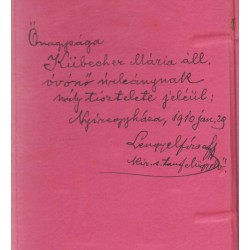 Őnagysága
Kübecher Mária áll.
óvónő úrleánynak
mély tisztelete jeléül;
Nyíregyháza, 1910 jan. 29
Lengyel
kir. s. tanfelügyelő